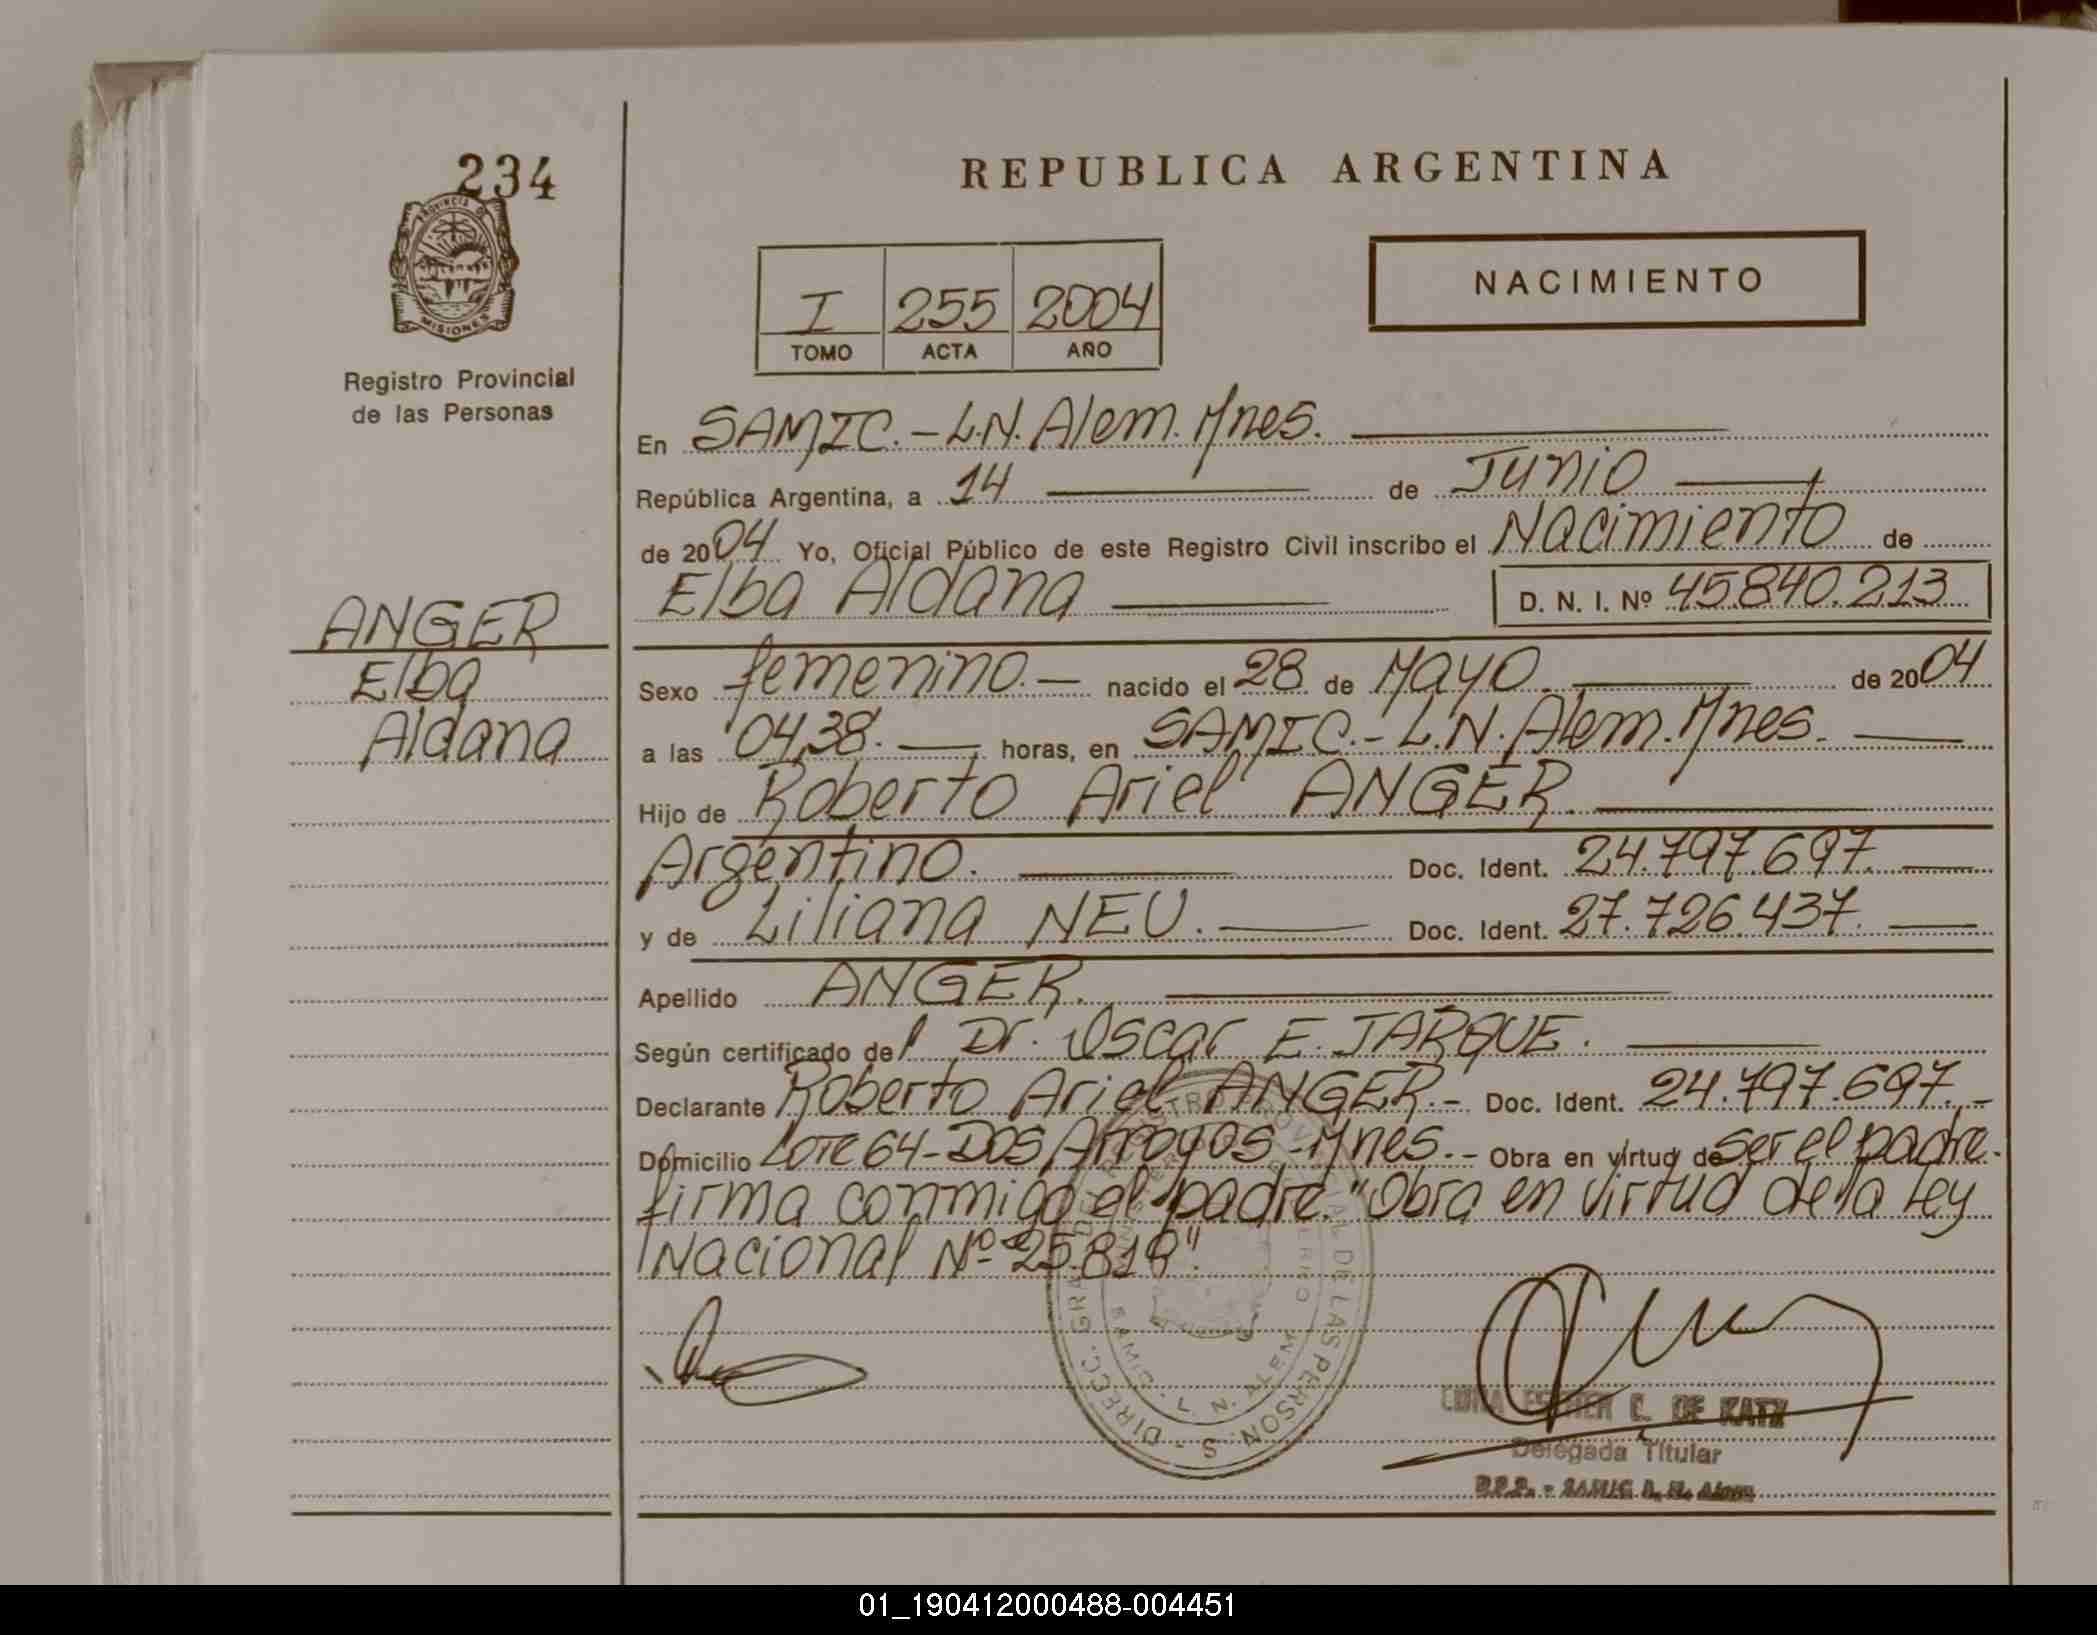 234
PROVINCIA DE
MISIONES
Registro Provincial
de las Personas
ANGER
Elba
Aldana
REPUBLICA ARGENTINA
I 255 2004
TOMO ACTA AÑO
NACIMIENTO
En SAMIC.-L.N.Alem.Mnes.
República Argentina, a 14 de Junio
de 2004 Yo, Oficial Público de este Registro Civil inscribo el Nacimiento de
Elba Aldana D. N. I. Nº 45.840.213
Sexo femenino.- nacido el 28 de Mayo de 2004
a las 04,38. horas, en SAMIC.-L.N.Alem.Mnes.
Hijo de Roberto Ariel ANGER.
Argentino. Doc. Ident. 24.797.697.
y de Liliana NEU. Doc. Ident. 27.726.437.
Apellido ANGER.
Según certificado del Dr. Oscar E. JARQUE.
Declarante Roberto Ariel ANGER.- Doc. Ident. 24.797.697.-
Domicilio Lote 64-Dos Arroyos-Mnes.- Obra en virtud de ser el padre.
firma conmigo el padre."Obra en virtud de la Ley
Nacional Nº 25.819".
DIRECC. GRAL. DE LAS PERSONAS
SAMIC - L. N. ALEM
ESTHER C. DE KATZ
Delegada Titular
R.P.P. - SAMIC L. N. Alem
01_190412000488-004451